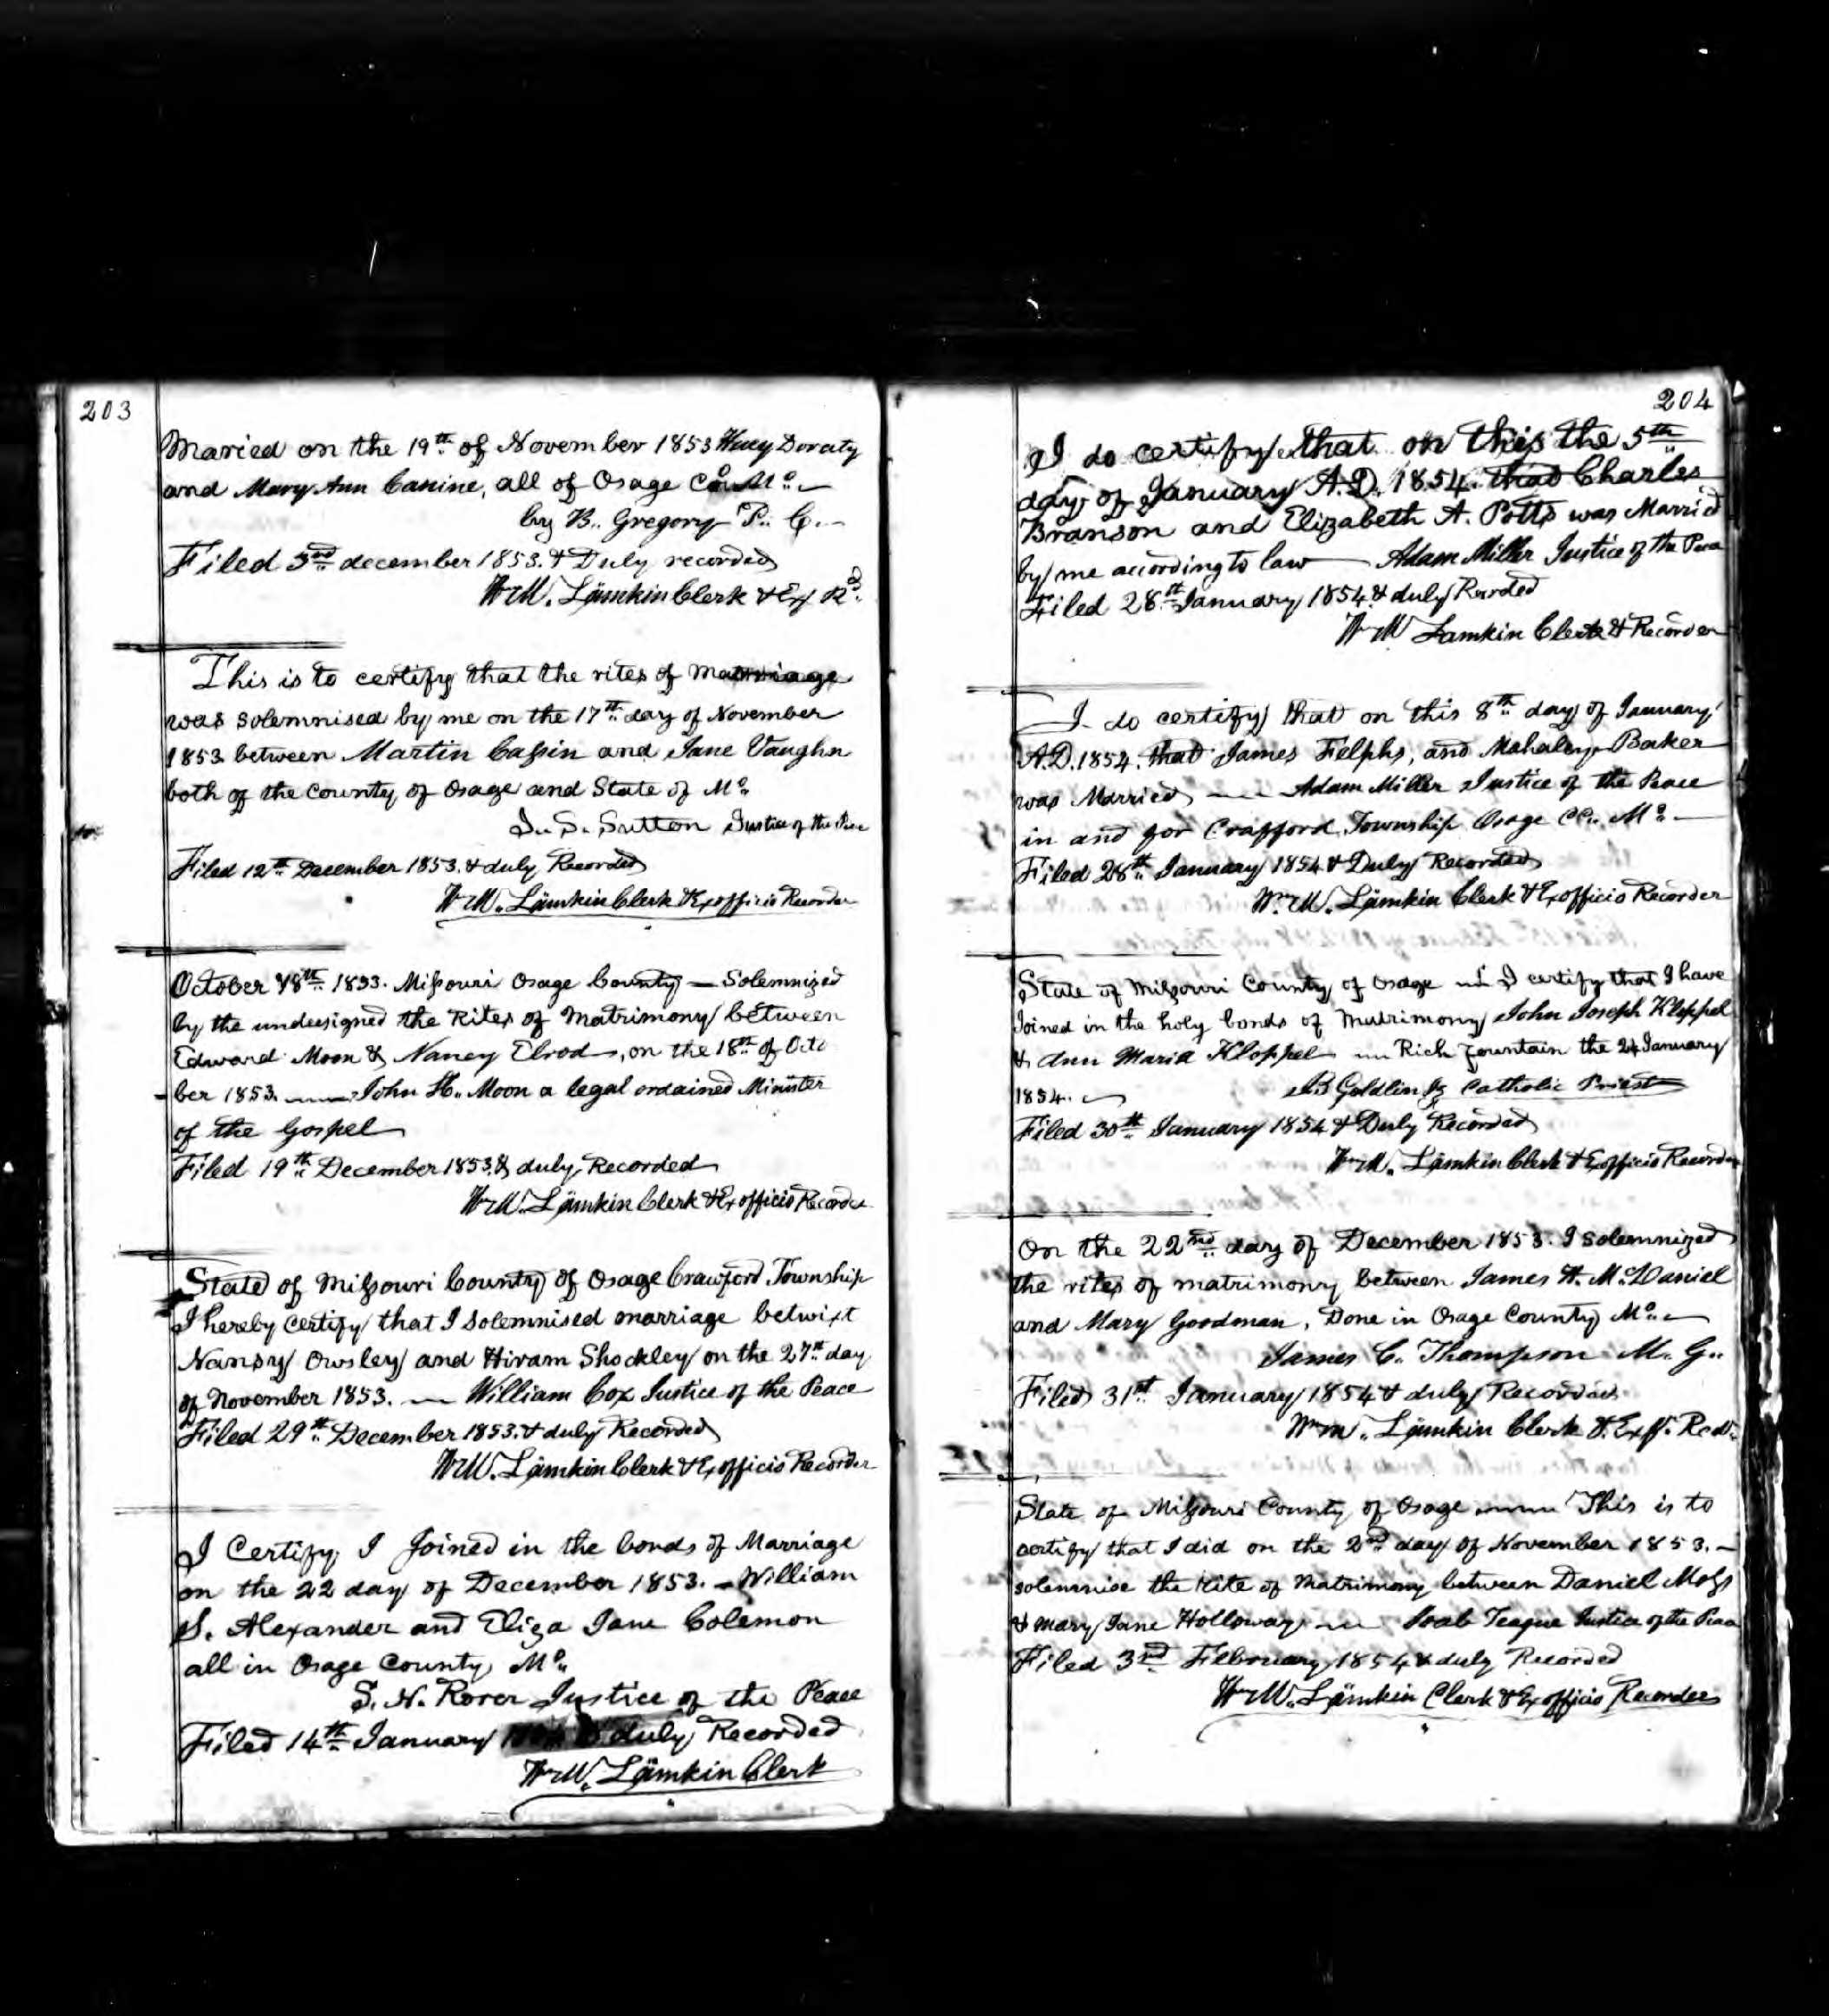 203
Maried on the 19th of November 1853 Huey Doraty
and Mary Ann Canine, all of Osage Co. Mo.
by B. Gregory P. C.
Filed 3rd december 1853. & Duly recorded
Wm. Lämkin Clerk & Ex Rd.
This is to certify that the rites of Matriage
was solemnised by me on the 17th day of November
1853 between Martin Cassin and Jane Vaughn
both of the County of Osage and State of Mo.
J. S. Sutton Justice of the Peace
Filed 12th December 1853. & duly Recorded
Wm. Lämkin Clerk & Exofficio Recorder
October 18th 1853. Missouri Osage County — Solemnized
by the undersigned the Rites of Matrimony between
Edward Moon & Nancy Elrod, on the 18th of Octo
-ber 1853. John H. Moon a legal ordained Minister
of the Gospel
Filed 19th December 1853. & duly Recorded
Wm. Lämkin Clerk & Exofficio Recorder
State of Missouri County of Osage Crawford Township
I hereby certify that I solemnised marriage betwixt
Nansy Owsley and Hiram Shockley on the 27th day
of November 1853. — William Cox Justice of the Peace
Filed 29th December 1853. & duly Recorded
Wm. Lämkin Clerk & Exofficio Recorder
I Certify I Joined in the bonds of Marriage
on the 22 day of December 1853. — William
S. Alexander and Eliza Jane Colemon
all in Osage County Mo.
S. N. Rorer Justice of the Peace
Filed 14th January duly Recorded
Wm. Lämkin Clerk
204
I do certify that on this the 5th
day of January A.D. 1854. that Charles
Branson and Elizabeth A. Potts was Married
by me according to law — Adam Miller Justice of the Peace
Filed 28th January 1854. & duly Recorded
Wm Lamkin Clerk & Recorder
I do certify that on this 8th day of January
A.D. 1854. that James Felphs, and Mahaley Baker
was Married — Adam Miller Justice of the Peace
in and for Crafford Township Osage CO. Mo. —
Filed 28th January 1854 & Duly Recorded
Wm. Lämkin Clerk & Exofficio Recorder
State of Missouri County of Osage I certify that I have
Joined in the holy bonds of Matrimony John Joseph Kloppel
& Ann Maria Kloppel Rich Fountain the 24 January
1854. Goldling Catholic Priest
Filed 30th January 1854 & Duly Recorded
Wm. Lämkin Clerk & Exofficio Recorder
On the 22nd day of December 1853. I solemnized
the rites of matrimony between James H. McDaniel
and Mary Goodman, Done in Osage County Mo.
James C. Thompson M. G.
Filed 31st January 1854 & duly Recorded
Wm. Lämkin Clerk & Exff. Recdr.
State of Missouri County of Osage This is to
certify that I did on the 2nd day of November 1853. —
solemnise the Rite of Matrimony between Daniel Moss
& Mary Jane Holloway Joab Teague Justice of the Peace
Filed 3rd February 1854 & duly Recorded
Wm. Lämkin Clerk & Exofficio Recorder